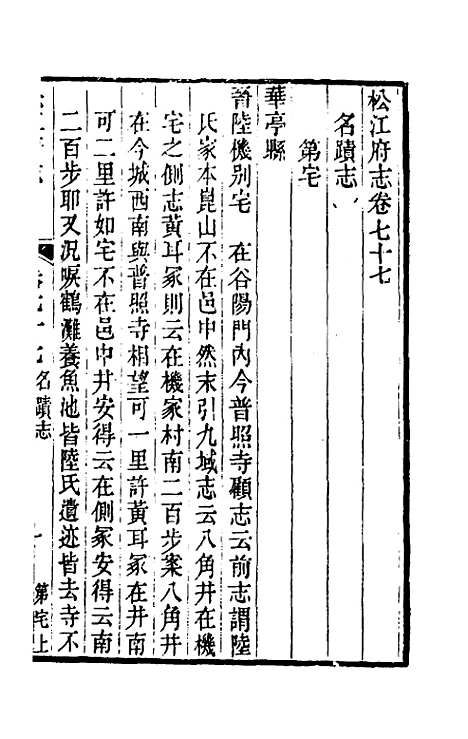 松江府志卷七十七
名蹟志
第宅
華亭縣
晉陸機別宅 在谷陽門內今普照寺顧志云前志謂陸
氏家本崑山不在邑中然末引九域志云八角井在機
宅之側志黃耳冢則云在機家村南二百步案八角井
在今城西南與普照寺相望可一里許黃耳冢在井南
可二里許如宅不在邑中井安得云在側冢安得云南
二百步耶又況唳鶴灘養魚池皆陸氏遺迹皆去寺不
名蹟志
第宅上